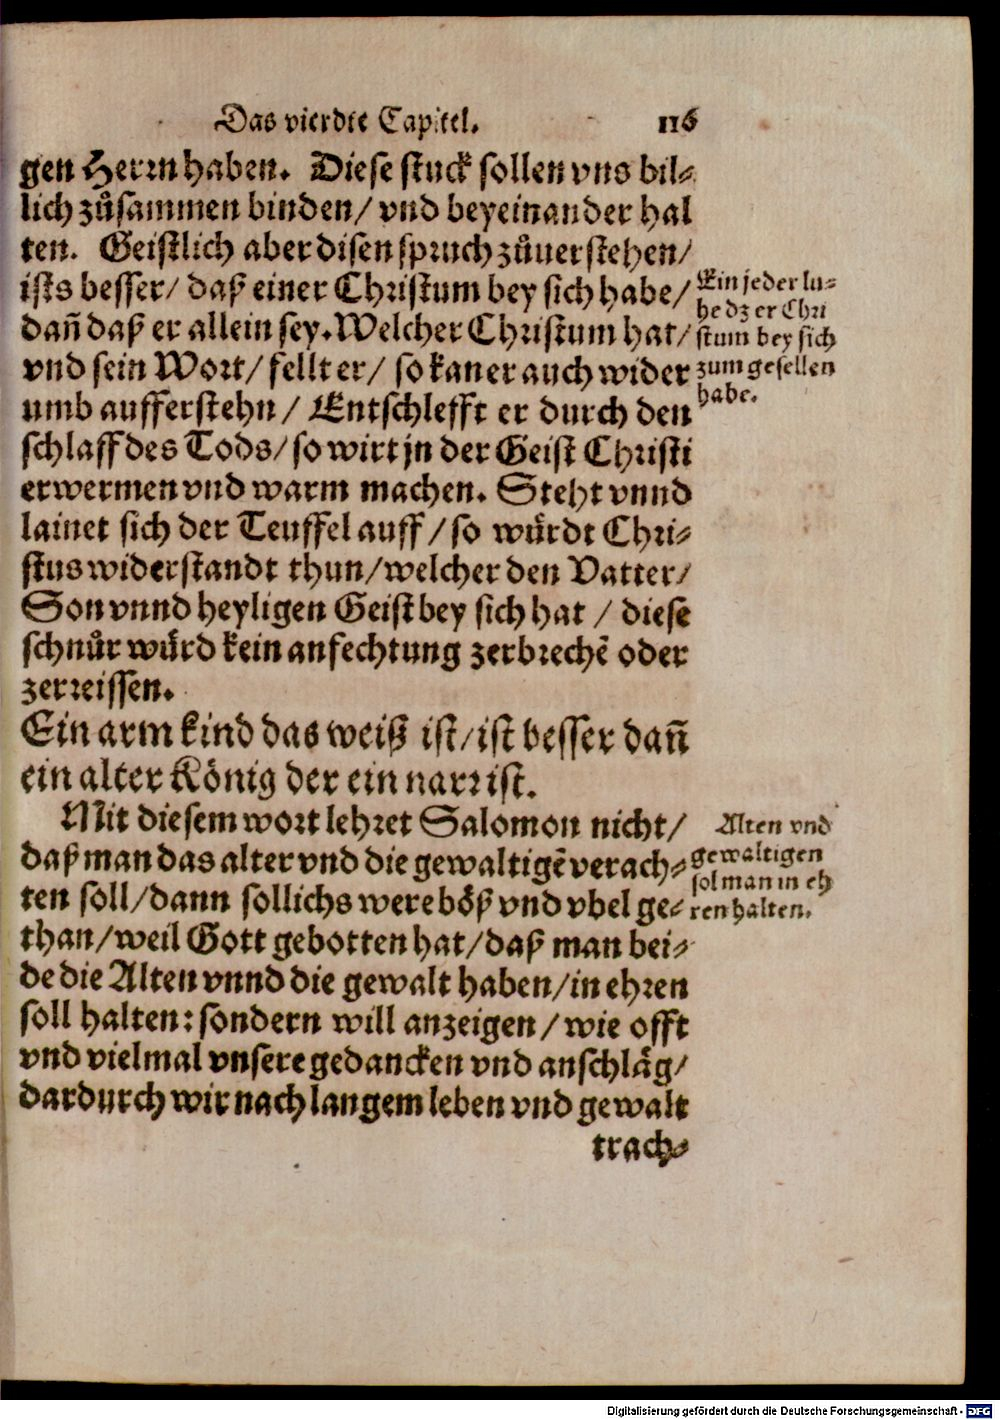 Das vierdte Capitel. 116
gen Herrn haben. Diese stuck sollen vns bil-
lich zůsammen binden/ vnd beyeinander hal
ten. Geistlich aber disen spruch zůuerstehen/
ists besser/ daß einer Christum bey sich habe/
dañ daß er allein sey. Welcher Christum hat/
vnd sein Wort/ fellt er/ so kan er auch wider
umb aufferstehn/ Entschlefft er durch den
schlaff des Tods/ so wirt jn der Geist Christi
erwermen vnd warm machen. Steht vnnd
lainet sich der Teuffel auff/ so wůrdt Chri-
stus widerstandt thun/ welcher den Vatter/
Son vnnd heyligen Geist bey sich hat/ diese
schnůr wůrd kein anfechtung zerbrechẽ oder
zerreissen.
Ein jeder lu-
he dz er Chri
stum bey sich
zum gesellen
habe.
Ein arm kind das weiß ist/ ist besser dañ
ein alter König der ein narr ist.
Mit diesem wort lehret Salomon nicht/
daß man das alter vnd die gewaltigẽ verach-
ten soll/ dann sollichs were böß vnd vbel ge-
than/ weil Gott gebotten hat/ daß man bei-
de die Alten vnnd die gewalt haben/ in ehren
soll halten: sondern will anzeigen/ wie offt
vnd vielmal vnsere gedancken vnd anschläg/
dardurch wir nach langem leben vnd gewalt
trach-
Alten vnd
gewaltigen
sol man in eh
ren halten.
Digitalisierung gefördert durch die Deutsche Forschungsgemeinschaft - DFG